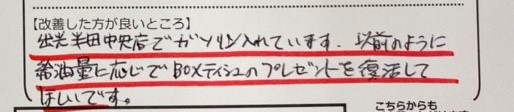 【改善した方が良いところ】
出光半田中央店でガソリン入れています。以前のように
給油量に応じでBOXティシュのプレゼントを復活して
ほしいです。
こちらからも